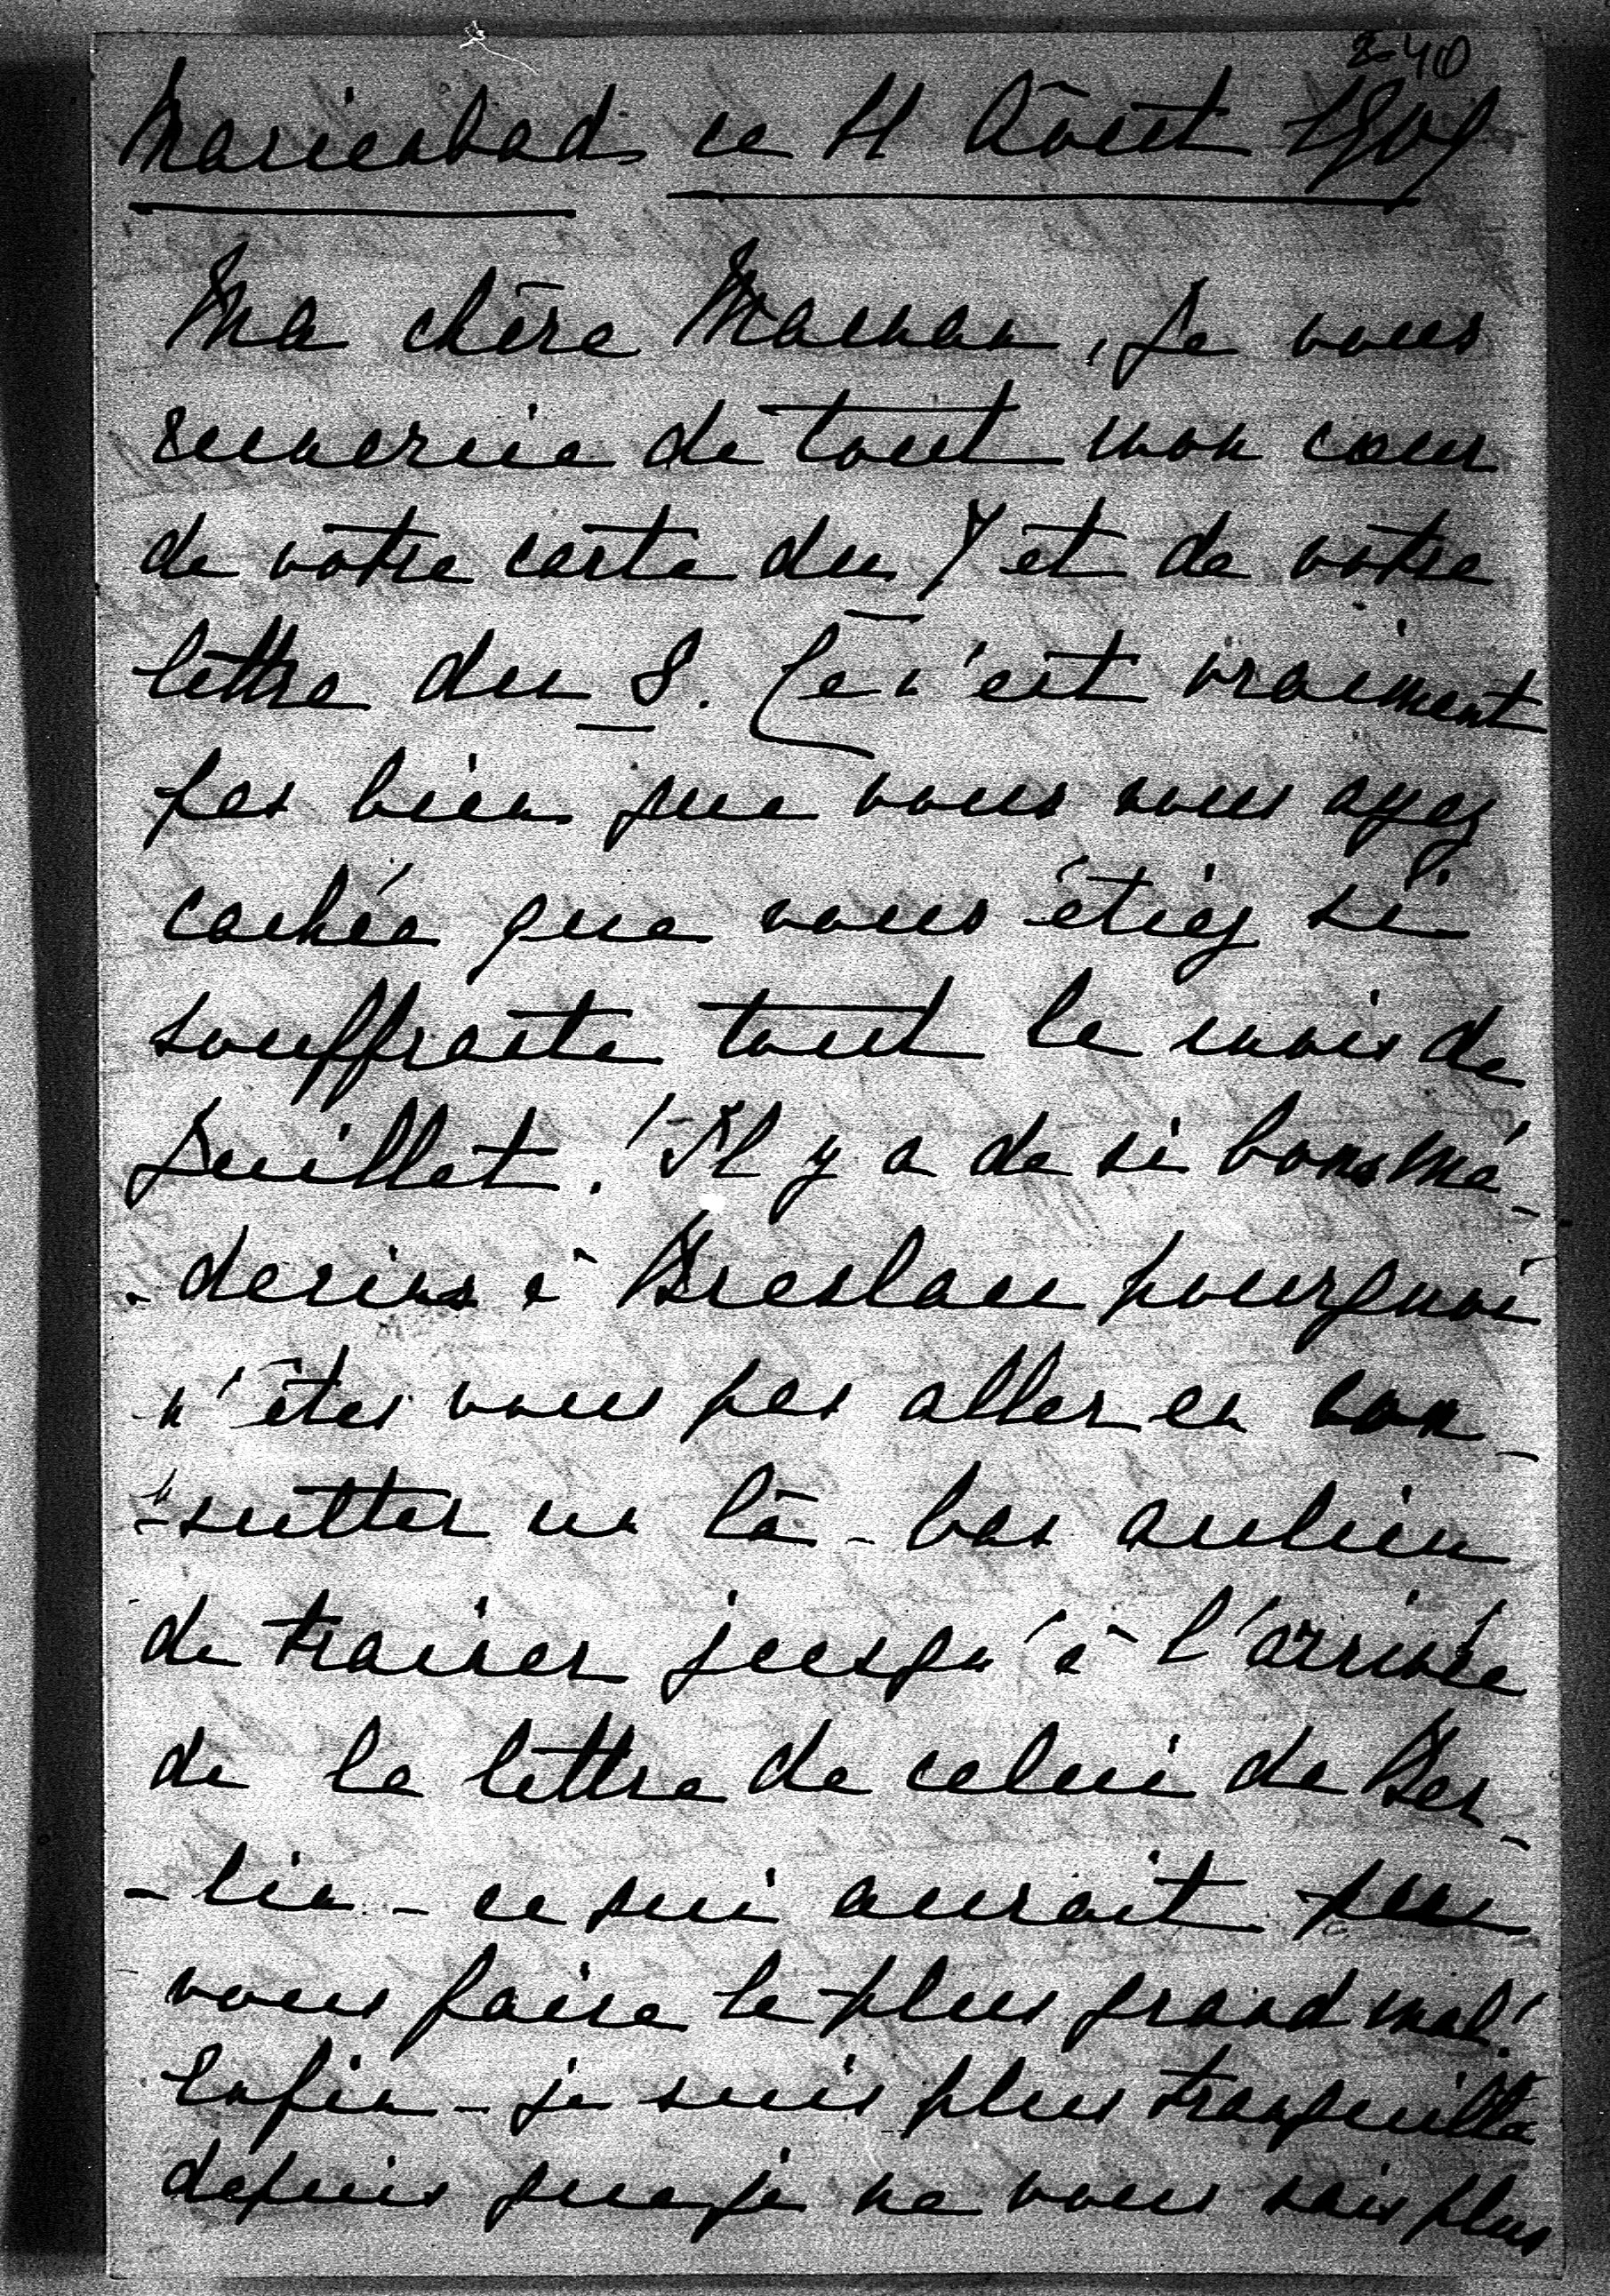 240
Marienbad, ce 11 Août 1909
Ma chère Maman, Je vous
remercie de tout mon cœur
de votre carte du 7 et de votre
lettre du 8. Ce n'est vraiment
pas bien que vous nous ayez
cachée que vous étiez si
souffrante tout le mois de
Juillet! Il y a de si bons mé-
-decins à Breslau pourquoi
n'êtes vous pas aller en con-
-sulter un là-bas aulieu
de trainer jusqu'à l'arrivée
de la lettre de celui de Ber-
-lin - ce qui aurait pu
vous faire le plus grand mal!
Enfin - je suis plus tranquille
depuis que je ne vous sais plus